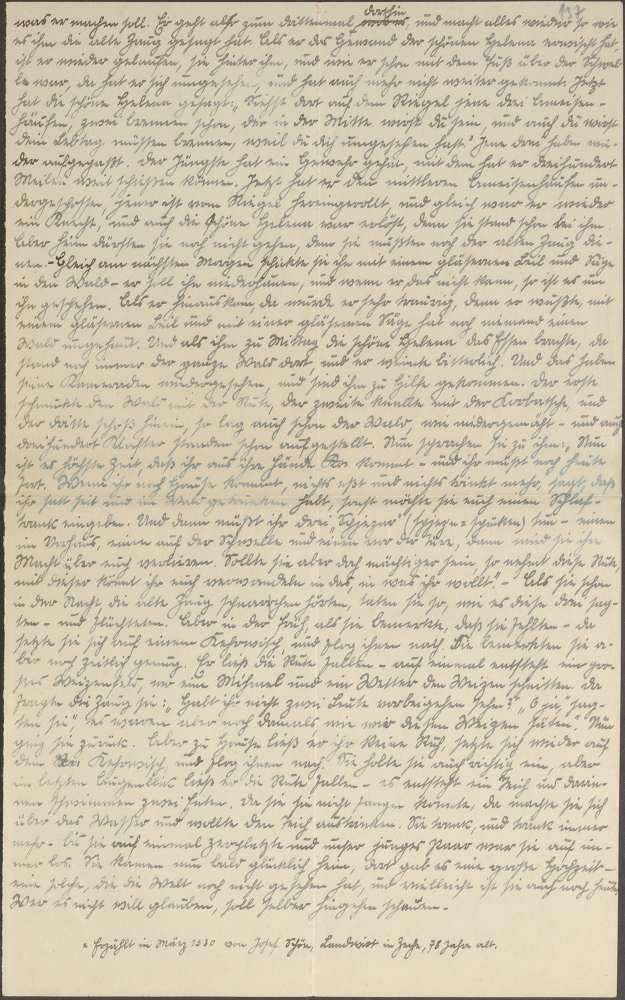 dorthin 137
was er machen soll. Er geht also zum drittenmal und macht alles wieder so wie
es ihm die alte Zauq gesagt hat. Als er das Gewand der schönen Helena erwischt hat,
ist er wieder gelaufen, sie hinter ihm, und wie er schon mit dem Fuß über der Schwel-
le war, da hat er sich umgesehen, und hat auch mehr nicht weiter gekonnt. Jetzt
hat die schöne Helena gesagt: „Siehst dort auf dem Riegel jene drei Ameisen-
häufen, zwei brennen schon, der in der Mitte wirst du sein, und auch du wirst
dein Lebtag müssen brennen, weil du dich umgesehen hast." Jene drei haben wie-
der aufgepaßt. Der Jüngste hat ein Gewehr gehabt, mit dem hat er dreihundert
Meilen weit schießen können. Jetzt hat er den mittleren Ameisenhaufen un-
dergeschossen, jener ist vom Riegel heruntergerollt, und gleich war er wieder
ein Knecht, und auch die schöne Helena war erlöst, denn sie stand schon bei ihm.
Aber heim durften sie noch nicht gehen, denn sie mußten noch der alten Zauq die-
nen. - Gleich am nächsten Morgen schickte sie ihn mit einem gläsernen Beil und Säge
in den Wald - er soll ihn niederhauen, und wenn er das nicht kann, so ist es um
ihn geschehen. Als er hinauskam, da wurde er sehr traurig, denn er wußte, mit
einem gläsernen Beil und mit einer gläsernen Säge hat noch niemand einen
Wald umgehaut. Und als ihm zu Mittag die schöne Helena das Essen brachte, da
stand noch immer der ganze Wald dort, und er weinte bitterlich. Und das haben
seine Kameraden wiedergesehen, und sind ihm zu Hilfe gekommen. Der erste
schmickte den Wald mit der Rute, der zweite knallte mit der Korbatsche, und
der dritte schoß hinein, so lag auch schon der Wald, wie niedergemäht - und auch
dreihundert Klafter standen schon aufgestellt. Nun sprachen sie zu ihm: „Nun
ist es höchste Zeit, daß ihr aus ihre Hände los kommt - und ihr müßt noch heute
fort. Wenn ihr nach Hause kommt, nichts eßt und nichts trinkt mehr, sagt, daß
ihr satt seit und im Wald getrunken habt, sonst möchte sie euch einen Schlaf-
trank eingeben. Und dann müßt ihr drei „ tun - einen
im Vorhaus, einen auf der Schwelle und einen vor der Türe, dann wird sie ihre
Macht über euch verlieren. Sollte sie aber doch mächtiger sein, so nehmt diese Rute,
mit dieser könnt ihr euch verwandeln in das, in was ihr wollt". - Als sie schon
in der Nacht die alte Zauq schnarchen hörten, taten sie so, wie es diese drei sag-
ten - und flüchteten. Aber in der Früh, als sie bemerkte, daß sie fehlten - da
setzte sie sich auf einem Kehrwisch und flog ihnen nach. Die bemerkten sie a-
ber noch zeitlich genug. Er ließ die Rute fallen - auf einmal entsteht ein gro-
ßes Weizenfeld, wo eine Mihmel und ein Vetter den Weizen schnitten. Da
fragte die Zauq sie: „Habt ihr nicht zwei Leute vorbeigehen sehn?" „O ja, sag-
ten sie", es waren aber noch damals wie wir diesen Weizen säten. Nun
ging sie zurück. Aber zu Hause ließ er ihr keine Ruh, setzte sich wieder auf
den Kehrwisch, und flog ihnen nach. Sie holte sie auch richtig ein, aber
im letzten Augenblick ließ er die Rute fallen - es entsteht ein Teich und darin-
nen schwimmen zwei Enten. Da sie sie nicht fangen konnte, da machte sie sich
über das Wasser und wollte den Teich austrinken. Sie trank, und trank immer
mehr - bis sie auf einmal zerplatzte und unser junges Paar war sie auf im-
mer los. Sie kamen nun bald glücklich heim, dort gab es eine große Hochzeit -
eine solche, die die Welt noch nicht gesehen hat, und vielleicht ist sie auch noch heute
Wer es nicht will glauben, soll selber hingehen schauen. -
* Erzählt in März 1930 von Josef Schön, Landwirt in Zeche, 78 Jahre alt.